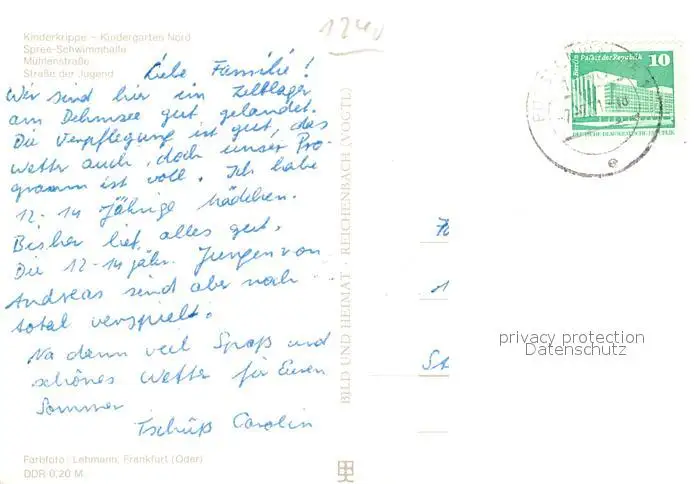 Kinderkrippe – Kindergarten Nord
Spree-Schwimmhalle
Mühlenstraße
Straße der Jugend
1240
Liebe Familie!
Wir sind hier im Zeltlager
am Dehmsee gut gelandet.
Die Verpflegung ist gut, das
Wetter auch, doch unser Pro-
gramm ist voll. Ich habe
12-14 Jährige Mädchen.
Bisher lief alles gut.
Die 12-14 jähr. Jungen von
Andreas sind aber noch
total verspielt.
Na dann viel Spaß und
schönes Wetter für Euren
Sommer
Tschüß Carolin
Farbfoto: Lehmann, Frankfurt (Oder)
DDR 0,20 M
BILD UND HEIMAT REICHENBACH (VOGTL)
Berlin Palast der Republik 10
DEUTSCHE DEMOKRATISCHE REPUBLIK
privacy protection
Datenschutz
St